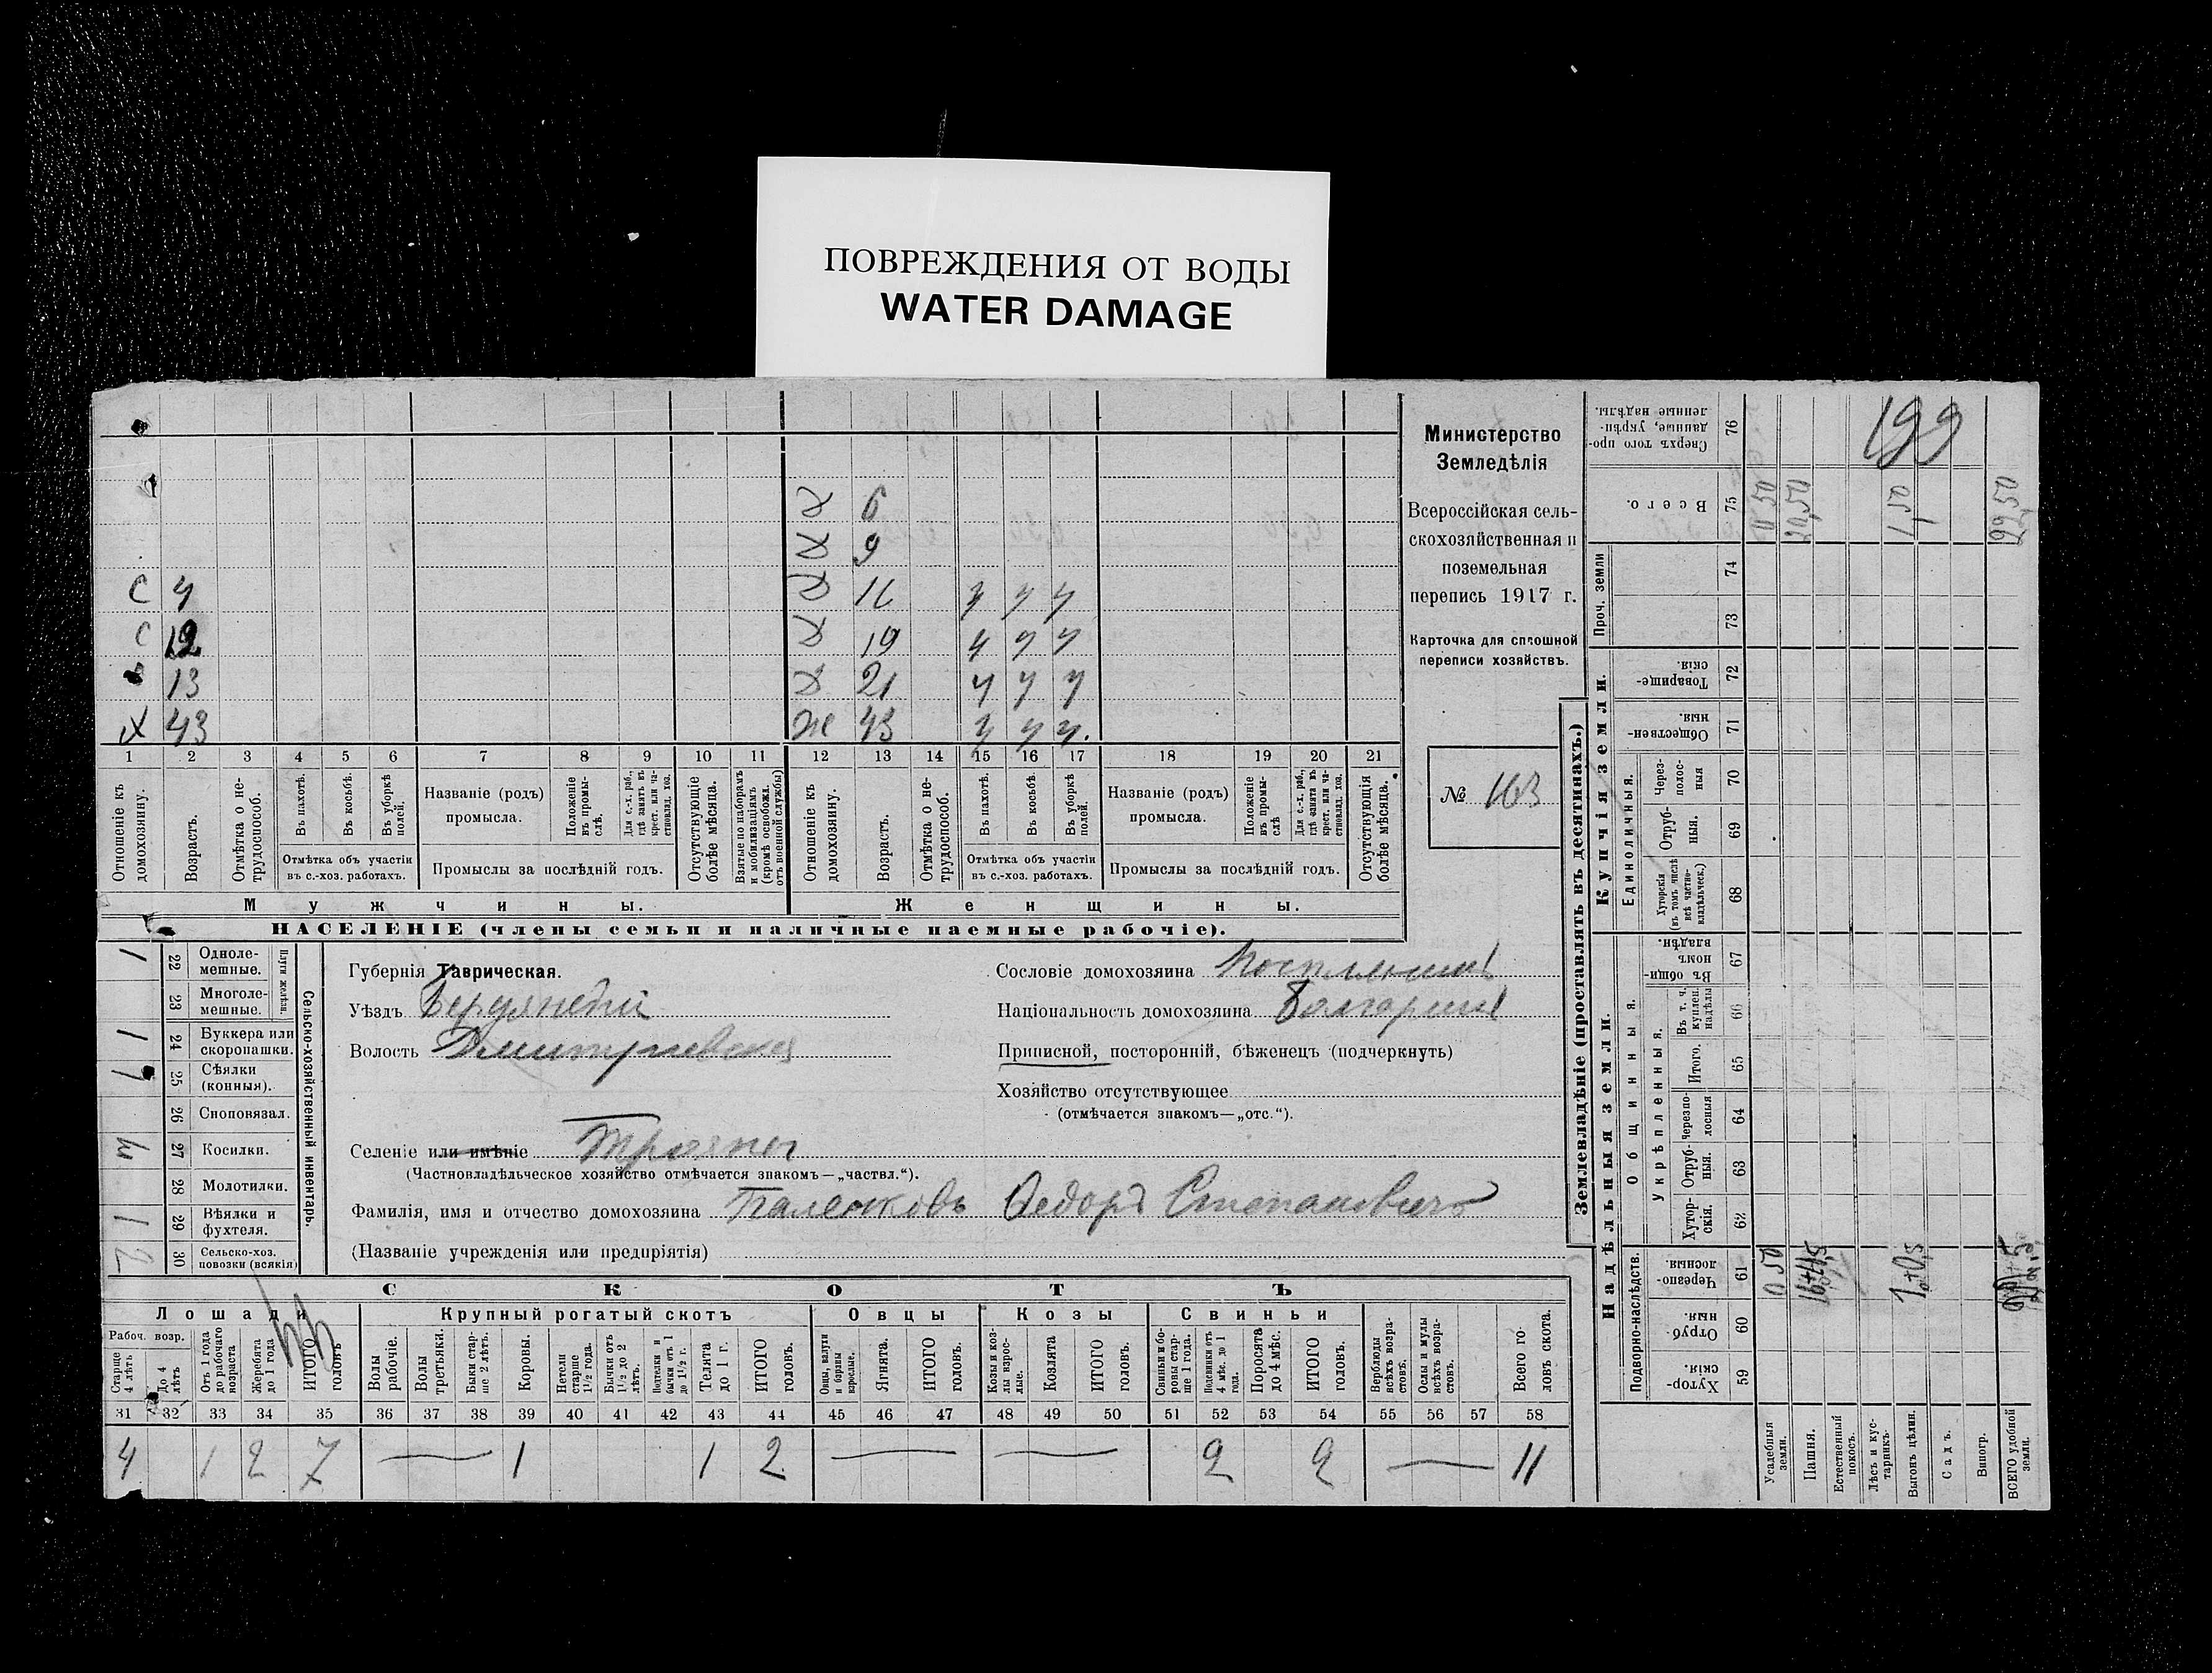 ПОВРЕЖДЕНИЯ ОТ ВОДЫ
WATER DAMAGE
Министерство
Земледѣлія
Всероссійская сель-
скохозяйственная и
поземельная
перепись 1917 г.
Карточка для сплошной
переписи хозяйствъ.
№ 163
199
6
9
С 4 16
С 12 19
13 21
Х 43 Ж 43
1 2 3 4 5 6 7 8 9 10 11 12 13 14 15 16 17 18 19 20 21
Отношеніе къ домохозяину.
Возрастъ.
Отмѣтка о не-трудоспособ.
Въ пахотѣ.
Въ косьбѣ.
Въ уборкѣ полей.
Отмѣтка объ участіи
въ с.-хоз. работахъ.
Названіе (родъ)
промысла.
Положеніе въ промы-слѣ.
Для с.-х. раб., гдѣ занятъ въ крест. или ча-стновлад. хоз.
Промыслы за послѣдній годъ.
Отсутствующіе болѣе мѣсяца.
Взятые по наборамъ и мобилизаціямъ (кромѣ освобожд. отъ военной службы)
Отношеніе къ домохозяину.
Возрастъ.
Отмѣтка о не-трудоспособ.
Въ пахотѣ.
Въ косьбѣ.
Въ уборкѣ полей.
Отмѣтка объ участіи
въ с.-хоз. работахъ.
Названіе (родъ)
промысла.
Положеніе въ промы-слѣ
Для с.-х. раб., гдѣ занята въ крест. или ча-стновлад. хоз.
Промыслы за послѣдній годъ.
Отсутствующія болѣе мѣсяца.
Мужчины.
Женщины.
НАСЕЛЕНІЕ (члены семьи и наличные наемные рабочіе).
Сельско-хозяйственный инвентарь.
Плуги желѣзн.
1 22 Одноле-мешные.
23 Многоле-мешные.
1 24 Буккера или скоропашки.
25 Сѣялки (конныя).
26 Сноповязал.
27 Косилки.
28 Молотилки.
1 29 Вѣялки и фухтеля.
2 30 Сельско-хоз. повозки (всякія)
Губернія Таврическая.
Уѣздъ Бердянскій
Волость Дмитріевская
Селеніе или имѣніе Трояны
(Частновладѣльческое хозяйство отмѣчается знакомъ—„частвл.“).
Фамилія, имя и отчество домохозяина Паленковъ Федоръ Степановичъ
(Названіе учрежденія или предпріятія)
Сословіе домохозяина Поселянинъ
Національность домохозяина Болгаринъ
Приписной, посторонній, бѣженецъ (подчеркнуть)
Хозяйство отсутствующее
(отмѣчается знакомъ—„отс.“).
СКОТЪ
Лошади
Крупный рогатый скотъ
Овцы
Козы
Свиньи
Рабоч. возр.
Старше 4 лѣтъ
До 4 лѣтъ
Отъ 1 года до рабочаго возраста
Жеребята до 1 года
ИТОГО головъ
Волы рабочіе.
Волы третьяки.
Быки стар-ше 2 лѣтъ.
Коровы.
Нетели старше 1½ года.
Бычки отъ 1½ до 2 лѣтъ.
Подтелки и бычки отъ 1 до 1½ г.
Телята до 1 г.
ИТОГО головъ.
Овцы, валухи и бараны взрослые.
Ягнята.
ИТОГО головъ.
Козы и коз-лы взрос-лые.
Козлята
ИТОГО головъ.
Свиньи и бо-ровы стар-ше 1 года.
Подсвинки отъ 4 мѣс. до 1 года.
Поросята до 4 мѣс.
ИТОГО головъ.
Верблюды всѣхъ возра-стовъ.
Ослы и мулы всѣхъ возра-стовъ.
Всего го-ловъ скота.
31 32 33 34 35 36 37 38 39 40 41 42 43 44 45 46 47 48 49 50 51 52 53 54 55 56 57 58
4 1 2 7 — 1 1 2 — — 2 2 — 11
Землевладѣніе (проставлять въ десятинахъ.)
Надѣльныя земли.
Купчія земли.
Проч. земли
Подворно-наслѣдств.
Общинныя.
Укрѣпленныя.
Единоличныя.
Сверхъ того про-данные, укрѣп-ленные надѣлы. 76
Всего. 75
74
73
Товарище-скія. 72
Обществен-ныя. 71
Через-полос-ныя 70
Отруб-ныя. 69
Хуторскія (въ томъ числѣ всѣ частно-владѣльческ.) 68
Въ общи-номъ владѣн. 67
Въ т. ч. куплен. надѣлы 66
Итого. 65
Черезпо-лосныя 64
Отруб-ныя. 63
Хутор-скія. 62
Черезпо-лосныя 61
Отруб-ныя. 60
Хутор-скія. 59
Усадебныя земли.
Пашня.
Естественный покосъ.
Лѣсъ и кус-тарникъ.
Выгонъ цѣлин.
Садъ.
Виногр.
ВСЕГО удобной земли.
0 50
20,50
1,50
22,50